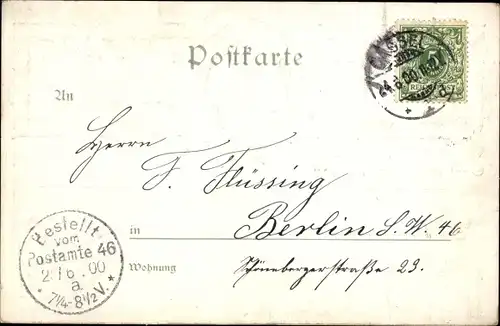 Postkarte
CASSEL
24.6.00
An
Herrn
F. Flüssing
in Berlin S. W. 46
Wohnung Schönebergerstraße 23.
Bestellt
vom
Postamte 46
6.00
a.
7¼-8½V.